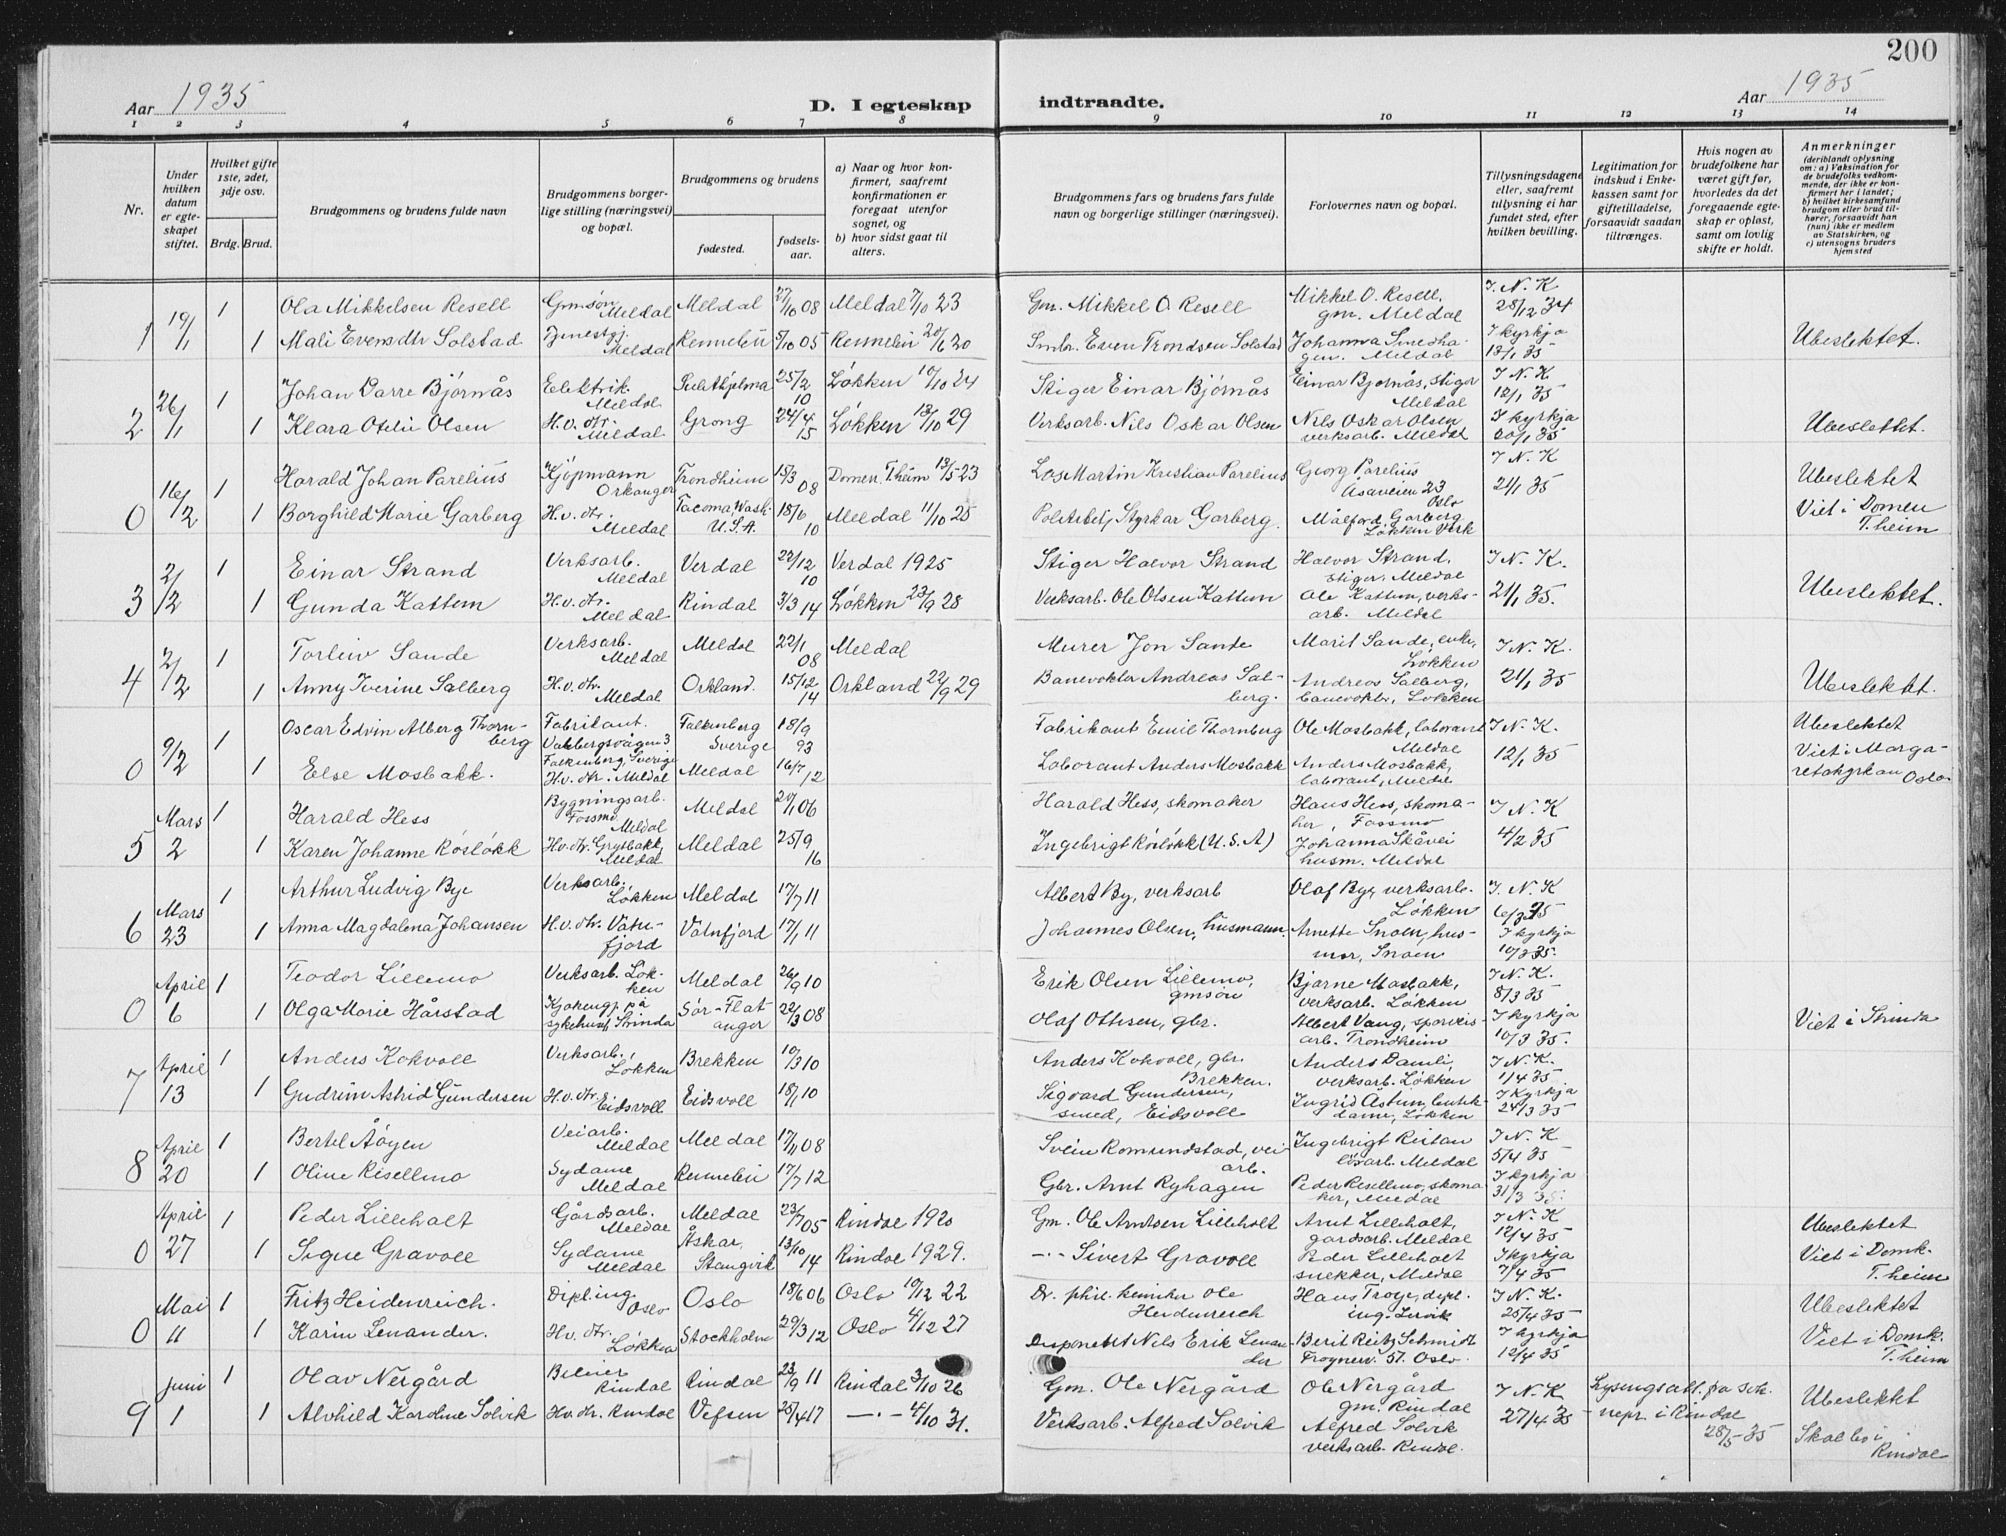 200
Aar 1935
D. I egteskap indtraadte.
Aar 1935
1 2 3 4 5 6 7 8 9 10 11 12 13 14
Nr.
Under hvilken datum er egteskapet stiftet.
Hvilket gifte 1ste, 2det, 3dje osv.
Brdg. Brud.
Brudgommens og brudens fulde navn
Brudgommens borgerlige stilling (næringsvei) og bopæl.
Brudgommens og brudens
fødested.
fødselsaar.
a) Naar og hvor konfirmert, saafremt konfirmationen er foregaat utenfor sognet, og
b) hvor sidst gaat til alters.
Brudgommens fars og brudens fars fulde navn og borgerlige stillinger (næringsvei).
Forlovernes navn og bopæl.
Tillysningsdagene eller, saafremt tillysning ei har fundet sted, efter hvilken bevilling.
Legitimation for indskud i Enkekassen samt for giftetilladelse, forsaavidt saadan tiltrænges.
Hvis nogen av brudefolkene har været gift før, hvorledes da det foregaaende egteskap er opløst, samt om lovlig skifte er holdt.
Anmerkninger
(deriblandt oplysning om: a) Vaksination for de brudefolks vedkommende, der ikke er konfirmert her i landet;
b) hvilket kirkesamfund brudgom eller brud tilhører, forsaavidt han (hun) ikke er medlem av Statskirken, og
c) utensogns bruders hjemsted
1 19/1 1 Ola Mikkelsen Resell Gmsøn Meldal Meldal 27/10 08 Meldal 7/10 23 Gm. Mikkel O. Resell Mikkel O. Resell, gm. Meldal I. N. K 28/12 34
1 Mali Evensdtr Solstad Tjenestgj. Meldal Rennebu 5/10 05 Rennebu 20/6 20 Smbr. Even Trondsen Solstad Johanna Smedhagen. Meldal I kyrkja 13/1 35 Ubeslektet.
2 26/1 1 Johan Darre Bjørnås Elektrik. Meldal Sulithjelma 25/2 10 Løkken 10/10 24 Stiger Einar Bjørnås Einar Bjørnås, stiger Meldal I N. K 12/1 35
1 Klara Otelie Olsen H.v. dtr. Meldal Grong 24/4 15 Løkken 13/10 29 Verksarb. Nils Oskar Olsen Nils Oskar Olsen verksarb. Meldal I kyrkja 20/1 35 Ubeslektet.
0 16/2 1 Harald Johan Parelius Kjøpmann Orkanger Trondheim 15/3 08 Domen, T.heim 13/5 23 Los Martin Kristian Parelius Georg Parelius Åsaveien 23 Oslo I N. K 21/1 35 Ubeslektet
1 Borghild Marie Garberg H.v. dtr. Meldal Tacoma, Wash. U.S.A. 18/6 10 Meldal 11/10 25 Politibetj Styrkar Garberg. Målfrid Garberg Løkken Verk Viet i Domen T.heim
3 2/2 1 Einar Strand Verksarb. Meldal Verdal 22/12 10 Verdal 1925 Stiger Halvor Strand Halvor Strand, stiger. Meldal I N. K.
1 Gunda Kattem H.v. dtr. Meldal Rindal 3/3 14 Løkken 23/9 28 Verksarb. Ole Olsen Kattem Ole Kattem, verksarb. Meldal 21/1 35. Ubeslektet.
4 2/2 1 Torleiv Sande Verksarb. Meldal Meldal 22/1 08 Meldal Murer Jon Sande Marit Sande, enke, Løkken I N. K.
1 Anny Iverine Salberg H.v. dtr. Meldal Orkland. 15/12 14 Orkland 22/9 29 Banevokter Andreas Salberg. Andreas Salberg, banevokter, Løkken 21/1 35 Ubeslektet.
0 9/2 1 Oscar Edvin Alberg Thornberg Fabrikant. Varbergsvågen 3 Falkenberg, Sverige Falkenberg Sverige 18/9 93 Fabrikant Emil Thornberg Ole Mosbakk, laborant Meldal I N. K. Ubeslektet
1 Else Mosbakk. H.v. dtr. Meldal Meldal 16/7 12 Laborant Anders Mosbakk Anders Mosbakk, laborant, Meldal 12/1 35 Viet i Margaretakyrkan Oslo.
5 Mars 2 1 Harald Hess Bygningsarb. Fossmo Meldal Meldal 20/1 06 Harald Hess, skomaker Hans Hess, skomaker, Fossmo I N. K
1 Karen Johanne Rösløkk Hv. dtr. Grytbakk, Meldal Meldal 25/9 16 Ingebrigt Rösløkk (U.S.A) Johanna Skåvei husm. Meldal 4/2 35
6 Mars 23 1 Arthur Ludvig Bye Verksarb., Løkken Meldal 17/7 11 Albert By, verksarb Olaf Bye, verksarb. Løkken I. N. K 6/3 35
1 Anna Magdalena Johansen H.v. dtr. Vatnfjord Vatnfjord 17/1 11 Johannes Olsen, husmann. Arnette Snoen, husmor, Snoen I kyrkja 10/3 35.
0 April 6 1 Teodor Lillemo Verksarb. Løkken Meldal 26/9 10 Erik Olsen Lillemo, gmsøn Bjarne Mosbakk, verksarb. Løkken I N. K. 8/3 35
1 Olga Marie Hårstad Kjøkengj. på sykehuset, Strinda Sør-Flatanger 22/3 08 Olaf Ottesen, gbr. Albert Vang, sporveisarb. Trondheim I kyrkja 10/3 35. Viet i Strinda
7 April 13 1 Anders Kokvoll Verksarb., Løkken Brekken 10/3 10 Anders Kokvoll, gbr. Brekken. Anders Damli, verksarb. Løkken I N. K. 1/4 35
1 Gudrun Astrid Gundersen H.v. dtr. Eidsvoll Eidsvoll 18/1 10 Sigvard Gundersen, smed, Eidsvoll Ingrid Åstum, butikdame, Løkken I Kyrkja 24/3 35
8 April 20 1 Bertel Åøyen Veiarb. Meldal Meldal 17/11 08 Svein Romundstad, veiarb. Ingebrigt Reitan løsarb. Meldal I N. K 5/4 35
1 Oline Resellmo Sydame Meldal Rennebu 17/7 12 Gbr. Arnt Ryhagen Peder Resellmo, skomaker, Meldal I kyrkja 31/3 35
0 April 27 1 Peder Lilleholt Gårdsarb. Meldal Meldal 23/7 05 Rindal 1920 Gm. Ole Arntsen Lilleholt Arnt Lilleholt, gårdsarb. Meldal I N. K 12/4 35 Ubeslektet
1 Signe Gravoll Sydame Meldal Åskar, Stangvik 13/10 14 Rindal 1929. -·- Sivert Gravoll Peder Lilleholt snekker, Meldal I kyrkja 7/4 35 Viet i Domk. T.heim
0 Mai 4 1 Fritz Heidenreich. Dipl.ing. Oslo Oslo 18/6 06 Oslo 10/12 22 Dr. phil. kemiker Ole Heidenreich Hans Troye, dipl. ing. Lervik I N. K. 25/4 35 Ubeslektet
1 Karin Lenander. Hv. dtr. Løkken Stockholm 29/3 12 Oslo 4/12 27 Disponent Nils Erik Lenander Berit Rietz Schmidt Frognerv. 57. Oslo. I kyrkja 12/4 35 Viet i Domk. T.heim
9 Juni 1 1 Olav Nergård Bileier Rindal Rindal 23/9 11 Rindal 3/10 26 Gm. Ole Nergård Ole Nergård gm. Rindal I N. K Lysingsatt. fra soknepr. i Rindal 28/5-35 Ubeslektet
1 Alvhild Karoline Solvik Hv. dtr. Rindal Vefsen 25/4 17 -·- 4/10 31. Verksarb. Alfred Solvik Alfred Solvik verksarb. Rindal. 27/4 35 Skal bo i Rindal